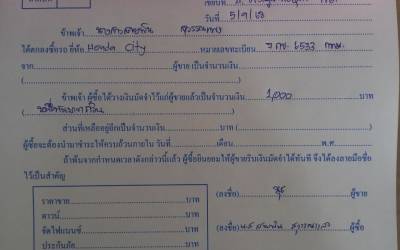 วันที่ 5/9/60
ข้าพเจ้า
ได้ตกลงซื้อรถ ยี่ห้อ Honda City หมายเลขทะเบียน 6533 กทม.
จาก ผู้ขาย เป็นจำนวนเงิน
ข้าพเจ้า ผู้ซื้อได้วางเงินมัดจำไว้แก่ผู้ขายแล้วเป็นจำนวนเงิน 1,000 บาท
(หนึ่งพันบาทถ้วน)
ส่วนที่เหลืออยู่อีกเป็นจำนวนเงิน บาท
( )
ผู้ซื้อจะต้องนำมาชำระให้ครบถ้วนภายใน วันที่ เดือน พ.ศ.
ถ้าพ้นจากกำหนดเวลาดังกล่าวนี้แล้ว ผู้ซื้อยินยอมให้ผู้ขายริบเงินมัดจำได้ทันที จึงได้ลงลายมือชื่อ
ไว้เป็นสำคัญ
ราคาขาย บาท
ดาวน์ บาท
จัดไฟแนนซ์ บาท
ประกันภัย บาท
(ลงชื่อ) ผู้ขาย
(ลงชื่อ) ผู้ซื้อ